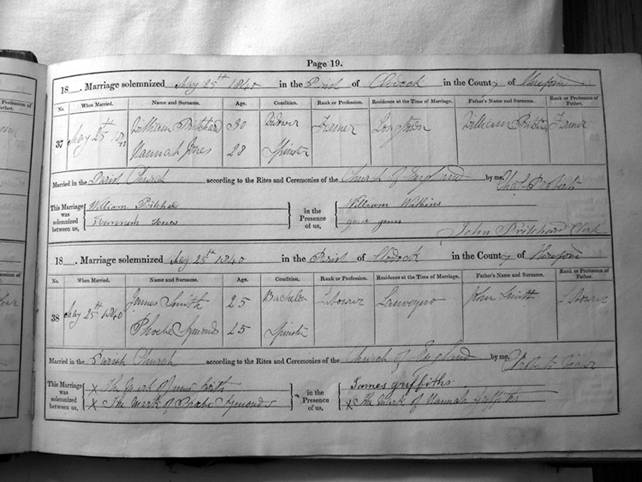 Page 19.
18 . Marriage solemnized May 25th 1840 in the Parish of Clodock in the County of Hereford
No. When Married. Name and Surname. Age. Condition. Rank or Profession. Residence at the Time of Marriage. Father's Name and Surname. Rank or Profession of Father.
37 May 25th William Pritchard 30 Widower Farmer Longtown William Farmer
Hannah Jones 28 Spinster
Married in the Parish Church according to the Rites and Ceremonies of the Church of England by me,
This Marriage was solemnized between us, William Pritchard in the Presence of us, William Watkins
Hannah Jones
John Pritchard
18 . Marriage solemnized May 25th 1840 in the Parish of Clodock in the County of Hereford
No. When Married. Name and Surname. Age. Condition. Rank or Profession. Residence at the Time of Marriage. Father's Name and Surname. Rank or Profession of Father.
38 May 25th 1840 James Smith 25 Bachelor Labourer John Smith Labourer
Phoebe Symonds 25 Spinster
Married in the Parish Church according to the Rites and Ceremonies of the Church of England by me,
This Marriage was solemnized between us, X The Mark of James Smith in the Presence of us, James Griffiths
X The Mark of Phoebe Symonds X The Mark of Hannah Griffiths